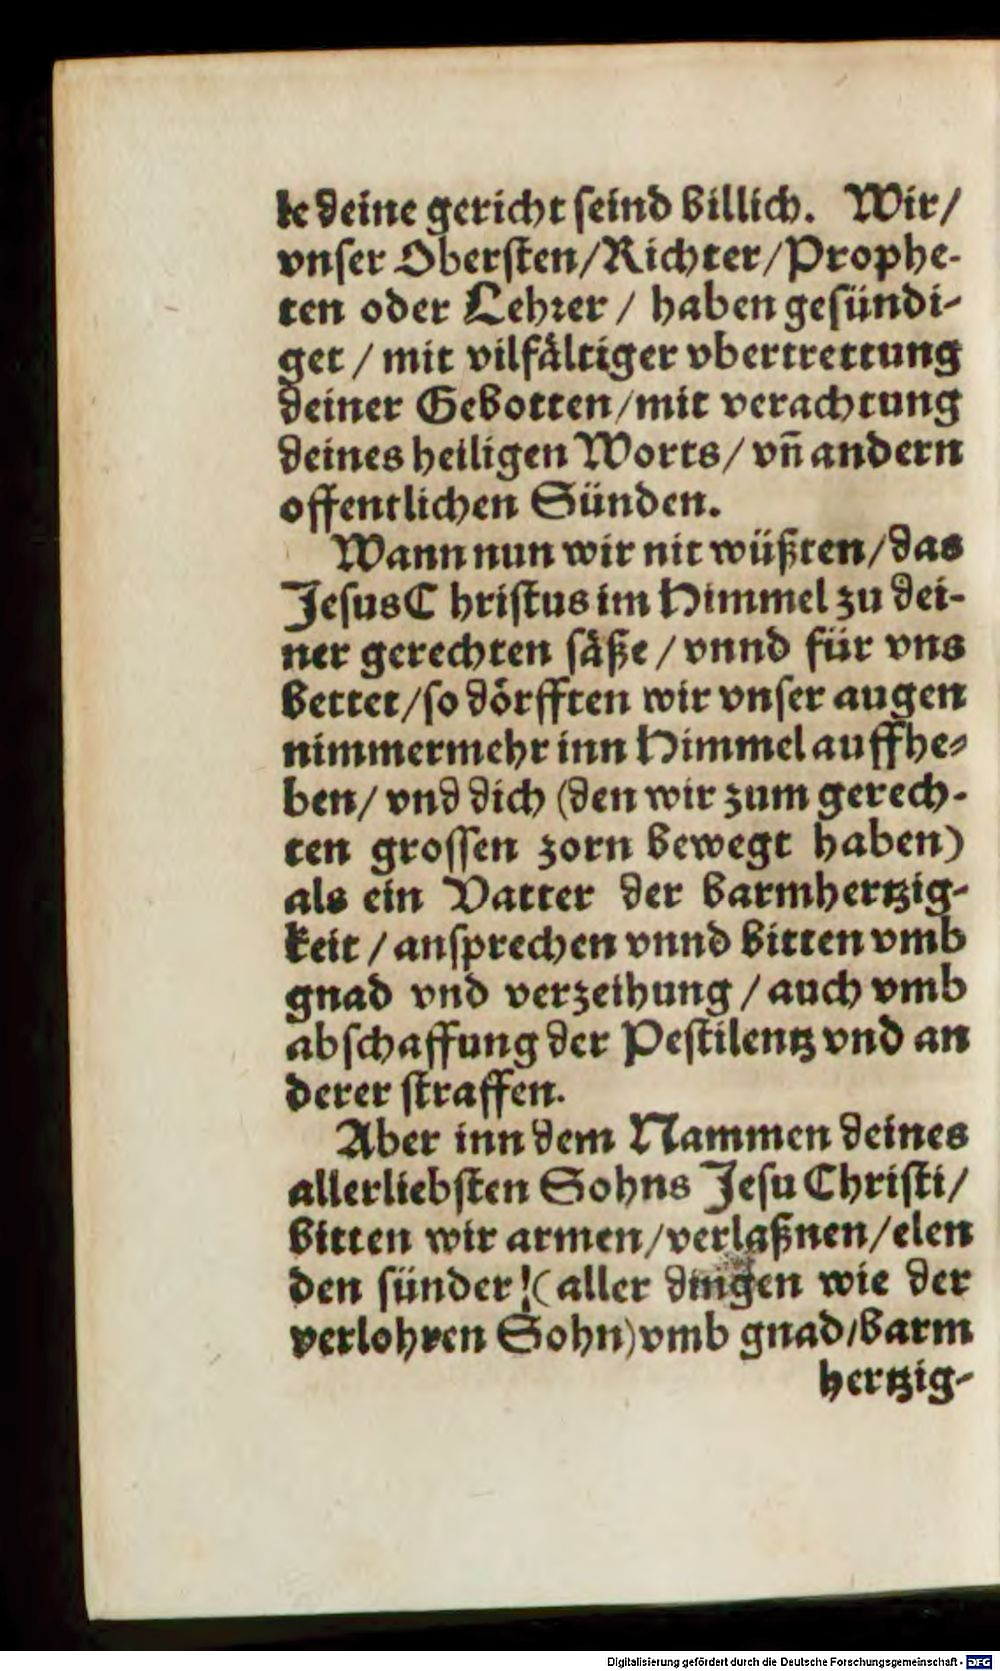 le deine gericht ſeind billich. Wir/
vnſer Oberſten/Richter/Prophe-
ten oder Lehꝛer / haben geſündi-
get / mit vilfältiger vbertrettung
deiner Gebotten/mit verachtung
deines heiligen Worts/ vn̄ andern
offentlichen Sünden.
Wann nun wir nit wüßten/das
JeſusC hriſtus im Himmel zu dei-
ner gerechten ſäße / vnnd für vns
bettet/ſo dörfften wir vnſer augen
nimmermehr inn Himmel auffhe-
ben/ vnd dich (den wir zum gerech-
ten groſſen zorn bewegt haben)
als ein Vatter der barmhertzig-
keit / anſprechen vnnd bitten vmb
gnad vnd verzeihung / auch vmb
abſchaffung der Peſtilentz vnd an
derer ſtraffen.
Aber inn dem Nammen deines
allerliebſten Sohns Jeſu Chriſti/
bitten wir armen/verlaßnen/elen
den ſünder!(aller dingen wie der
verlohren Sohn)vmb gnad/barm
hertzig-
Digitalisierung gefördert durch die Deutsche Forschungsgemeinschaft - DFG